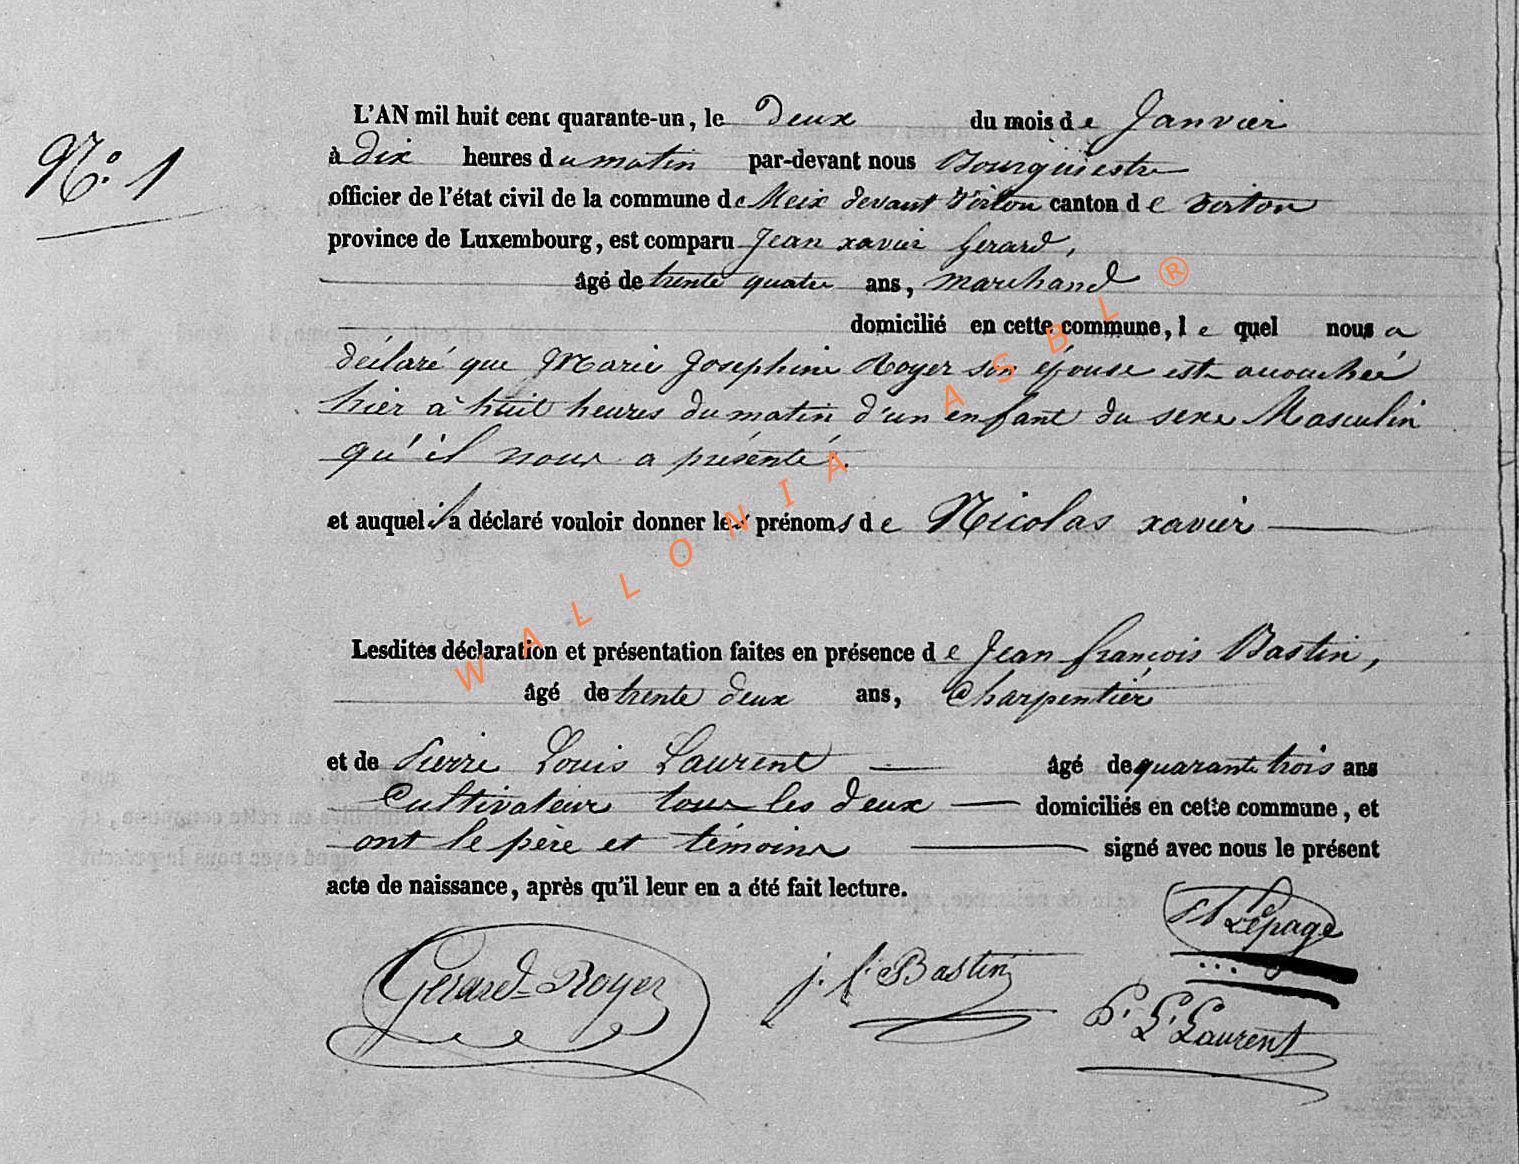 N.° 1
L'AN mil huit cent quarante-un, le deux du mois de Janvier
à dix heures du matin par-devant nous Bourgmestre
officier de l'état civil de la commune de Meix devant Virton canton de Virton
province de Luxembourg, est comparu Jean xavier Gerard,
âgé de trente quatre ans, marchand
domicilié en cette commune, le quel nous a
déclaré que Marie Josephine Royer son épouse est accouchée
hier à huit heures du matin d'un enfant du sexe Masculin
qu'il nous a présenté.
et auquel il a déclaré vouloir donner les prénoms de Nicolas xavier
Lesdites déclaration et présentation faites en présence de Jean françois Bastin,
âgé de trente deux ans, Charpentier
et de Pierre Louis Laurent âgé de quarante trois ans
Cultivateur tous les deux domiciliés en cette commune, et
ont le père et témoins signé avec nous le présent
acte de naissance, après qu'il leur en a été fait lecture.
Lepage
Gerard-Royer j. f. Bastin
P. L. Laurent
WALLONIA ASBL ®